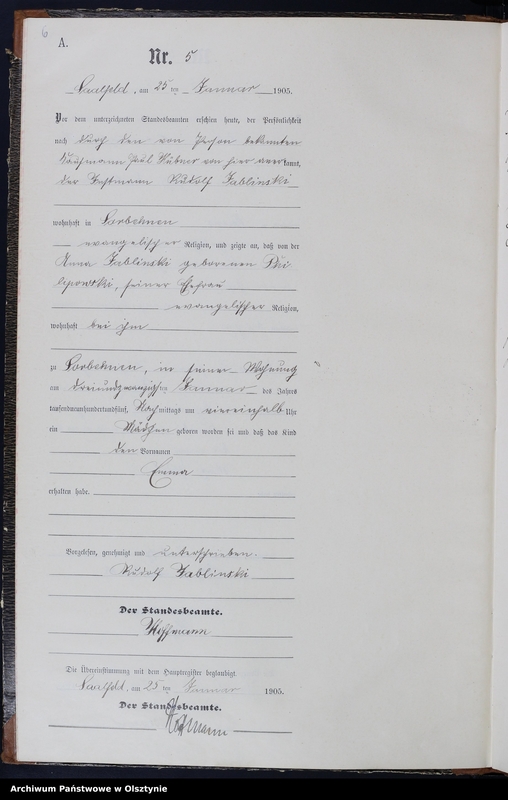 6
A.
Nr. 5
Saalfeld, am 25 ten Januar 1905.
Vor dem unterzeichneten Standesbeamten erschien heute, der Persönlichkeit
nach durch den von Person bekannten
Kaufmann Paul Hübner von hier anerkannt,
der Rudolf Jablinski
wohnhaft in Sorbehnen
evangelischer Religion, und zeigte an, daß von der
Anna Jablinski geborenen Phi
lipowski, seiner Ehefrau
evangelischer Religion,
wohnhaft bei ihm
zu Sorbehnen, in seiner Wohnung
am dreiundzwanzigsten Januar des Jahres
tausendneunhundertundfünf, Nachmittags um viereinhalb Uhr
ein Mädchen geboren worden sei und daß das Kind
den Vornamen
Emma
erhalten habe.
Vorgelesen, genehmigt und unterschrieben.
Rudolf Jablinski
Der Standesbeamte.
Hoffmann
Die Übereinstimmung mit dem Hauptregister beglaubigt.
Saalfeld, am 25 ten Januar 1905.
Der Standesbeamte.
Hoffmann
Archiwum Państwowe w Olsztynie